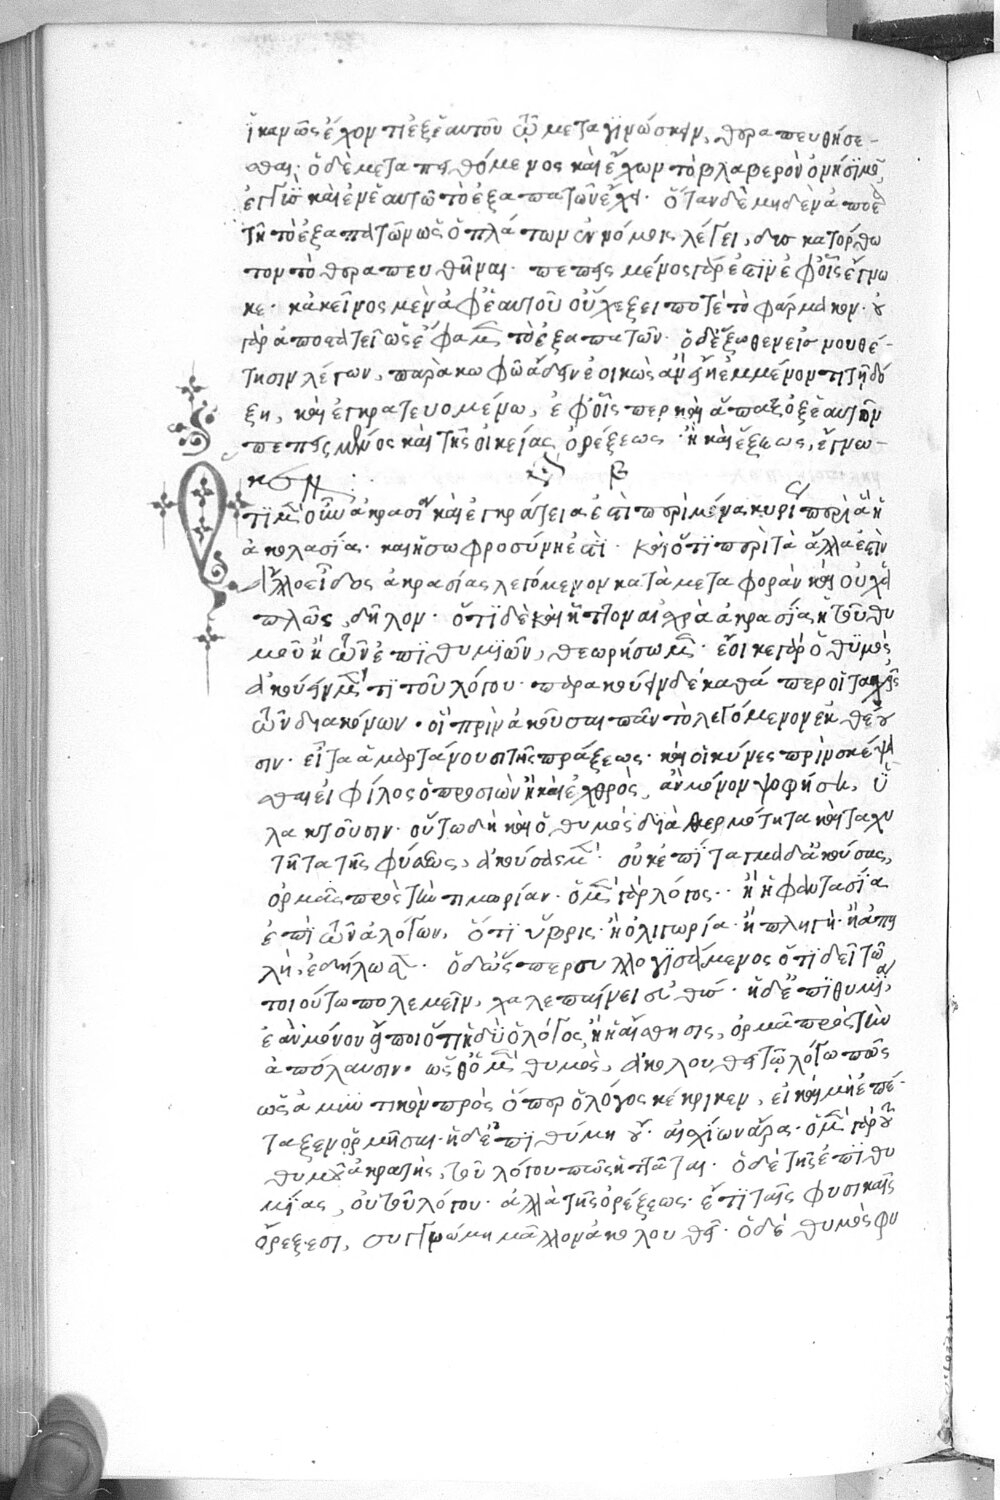 ἱκανῶς ἔχον τι ἐξ ἑαυτοῦ ᾧ μεταγινώσκειν, θεραπευθήσε-
σθαι· ὁ δὲ μεταπειθόμενος καὶ ἔχων τὸ βλαβερὸν
καὶ ἐν ἑαυτῷ τὸ ἐξαπατῶν ἔχει. ὅταν δὲ μηδὲν ἀποστατῇ
τὸ ἐξαπατῶν ὡς ὁ πλάτων ἐν νόμοις λέγει, δυσκατόρθω
τον τὸ θεραπευθῆναι. πεπεισμένος γὰρ ἐστὶν ἐφ' οἷς ἔγνω
κε. κἀκεῖνος μὲν ἀφ' ἑαυτοῦ οὐχ ἕξει ποτὲ τὸ φάρμακον. οὐ
γὰρ ἀποστατεῖ ὡς ἔφαμεν τὸ ἐξαπατῶν. ὁ δ' ἔξωθεν εἰς νουθέ-
τησιν λέγων, παρὰ κωφῷ ᾄδειν ἔοικεν ὡς ἂν ᾖ ἐμμένοντι τῇ δό
ξῃ, καὶ ἐγκρατευομένῳ, ἐφ' οἷς περ καὶ ἅπαξ ὁ ἐξ ἑαυτοῦ
πεπεισμένος καὶ τῆς οἰκείας ὀρέξεως ἢ καὶ ἕξεως, ἔγνω-
κεν
Ὅτι μὲν οὖν ἀκρασία καὶ ἐγκράτειά ἐστι περὶ μένα κυρίως περὶ ἃ ἡ
ἀκολασία καὶ ἡ σωφροσύνη ἐστί. καὶ ὅτι περὶ τὰ ἄλλα ἐστὶν
ἄλλο εἶδος ἀκρασίας λεγόμενον κατὰ μεταφορὰν καὶ οὐχ ἁ
πλῶς, δῆλον. ὅτι δὲ καὶ ἧττον αἰσχρὰ ἀκρασία ἡ τοῦ θυ
μοῦ ἢ τῶν ἐπιθυμιῶν, θεωρήσωμεν. ἔοικε γὰρ ὁ θυμὸς
ἀκούειν μέν τι τοῦ λόγου. παρακούειν δὲ καθάπερ οἱ ταχεῖς
τῶν διακόνων. οἳ πρὶν ἀκοῦσαι πᾶν τὸ λεγόμενον ἐκθέου
σιν. εἶτα ἁμαρτάνουσι τῆς πράξεως. καὶ οἱ κύνες πρὶν σκέψα
σθαι εἰ φίλος ὁ προσιὼν ἢ καὶ ἐχθρὸς, ἂν μόνον ψοφήσῃ, ὑ
λακτοῦσιν. οὕτω δὴ καὶ ὁ θυμὸς διὰ θερμότητα καὶ ταχυ
τῆτα τῆς φύσεως, ἀκούσας μέν. οὐκ ἐπίταγμα δ' ἀκούσας,
ὁρμᾷ πρὸς τὴν τιμωρίαν. ὁ μὲν γὰρ λόγος ἢ ἡ φαντασία
ἐπὶ τῶν ἀλόγων, ὅτι ὕβρις ἢ ὀλιγωρία ἢ πληγὴ ἢ ἀπει
λὴ, ἐδήλωσεν. ὁ δ' ὥσπερ συλλογισάμενος ὅτι δεῖ τῷ
τοιούτῳ πολεμεῖν, χαλεπαίνει εὐθύς. ἡ δ' ἐπιθυμία,
ἐὰν μόνον εἴποι ὅτι ἡδὺ ὁ λόγος ἢ ἡ αἴσθησις, ὁρμᾷ πρὸς τὴν
ἀπόλαυσιν. ὥσθ' ὁ μὲν θυμὸς, ἀκολουθεῖ τῷ λόγῳ πῶς
ὡς ἀμυντικὸν πρὸς ὅπερ ὁ λόγος κέκρικεν, εἰ καὶ μὴ ἐπέ-
ταξεν ὁρμῆσαι. ἡ δ' ἐπιθυμία οὔ. αἰσχίων ἄρα. ὁ μὲν γὰρ τοῦ
θυμοῦ ἀκρατὴς, τοῦ λόγου πως ἡττᾶται. ὁ δὲ τῆς ἐπιθυ
μίας, οὐ τοῦ λόγου. ἀλλὰ τῆς ὀρέξεως. ἔτι ταῖς φυσικαῖς
ὀρέξεσι, συγγνώμη μᾶλλον ἀκολουθεῖν. ὁ δὲ θυμὸς φυ